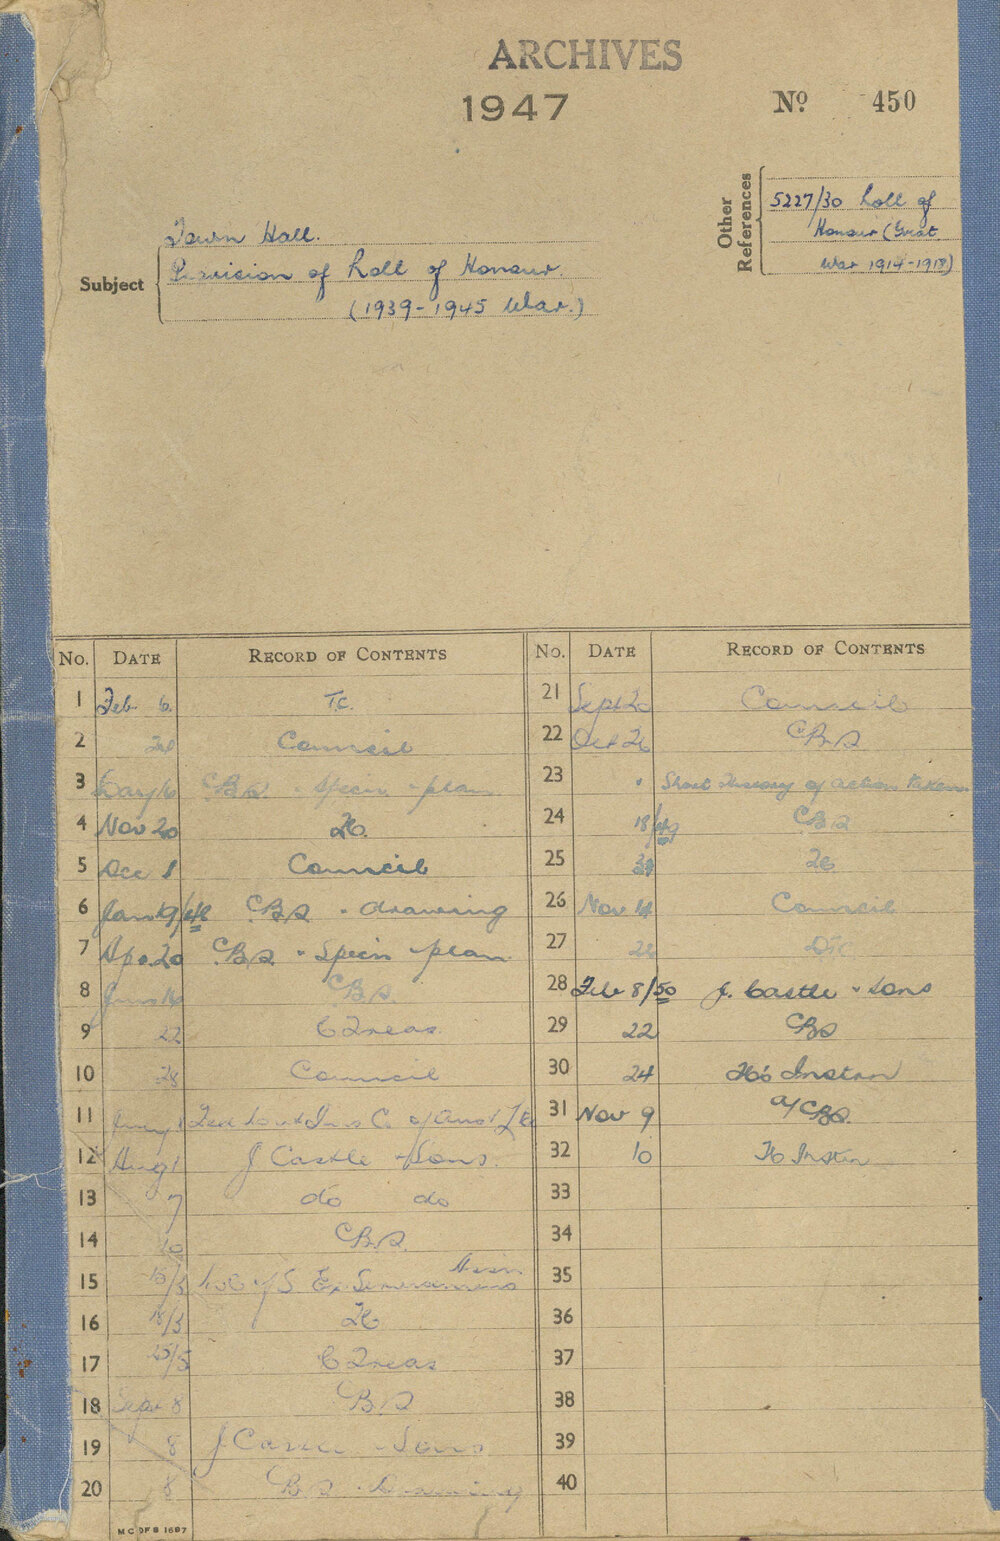 ARCHIVES
1947
Nº 450
Other References
5227/30 Roll of
Honour (Great
War 1914-1918)
Subject
Town Hall.
Provision of Roll of Honour.
(1939-1945 War.)
No. DATE RECORD OF CONTENTS
1 Feb 6. T.C.
2 Council
3 CBS. Specn plan
4 Nov 20
5 Dec 1 Council
6 Jan 19/48 CBS. drawing
7 Apr. 20 CBS. Specn plan
8 June CBS.
9 22 C Treas.
10 28 Council
11
12 Aug 1 J Castle Sons.
13 7 do do
14 10 CBS.
15
16 18/5
17 25/5 C Treas
18 Sept 8 CBS
19 8 J Castle Sons
20 8 CBS. Drawing
No. DATE RECORD OF CONTENTS
21 Sept 20 Council
22 Oct 26 CBS
23 Short History of action taken
24 18/49 CBS
25
26 Nov 14 Council
27
28 Feb 8/50 J. Castle Sons
29 22 CBS
30 24 Instrn
31 Nov 9 a/CBS.
32 10 Instrn
33
34
35
36
37
38
39
40
M C OF S 1697